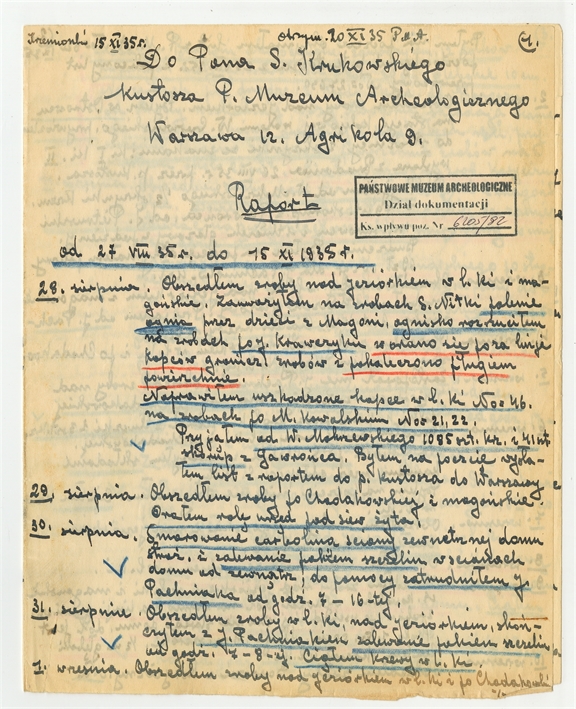 Krzemionki 15 XI 35 r.
otrzym. 20 XI 35 P.M.A.
1.
Do Pana S. Krukowskiego
Kustosza P. Muzeum Archeologicznego
Warszawa 12. Agrikola 9.
Raport
PAŃSTWOWE MUZEUM ARCHEOLOGICZNE
Dział dokumentacji
Ks. wpływu poz. Nr 6205/82
od 27 VIII 35 r. do 15 XI 1935 r.
28. sierpnia. Obszedłem zroby nad jeziórkiem w l. ki i ma-
gońskie. Zauważyłem na zrobach S. Nitki palenie
ognia przez dzieci z Magoni, ognisko rozrzuciłem
na zrobach po J. Krawczyku w orano się poza linję
kopców granicz. zrobów i pokaleczono pługiem
powierzchnię.
Naprawiłem uszkodzone kopce w l. ki Nos 46.
na zrobach po M. Kowalskim Nos 21, 22.
Przyjąłem od W. Mokrzewskiego 1085 szt. kz. i 41 szt.
skorup z Gawrońca. Byłem na poczcie wysła-
łem list z raportem do p. kustosza do Warszawy.
29. sierpnia. Obszedłem zroby po Chodakowskiej i magońskie.
Orałem rolę urzęd pod siew żyta.
30. sierpnia. Smarowanie carboliną ściany zewnętrznej domu
straż. i zalewanie pakiem szczelin w ścianach
domu od zewnątrz, do pomocy zatrudniłem J.
Pachniaka od godz. 7 – 16-tej.
31. sierpnia. Obszedłem zroby w l. ki, nad jeziórkiem, skoń-
czyłem z J. Pachniakiem zalewanie pakiem szczelin
od godz. 7 – 8-ej. Ciąłem krzewy w l. ki.
1. września. Obszedłem zroby nad jeziórkiem w l. ki i po Chodakowski